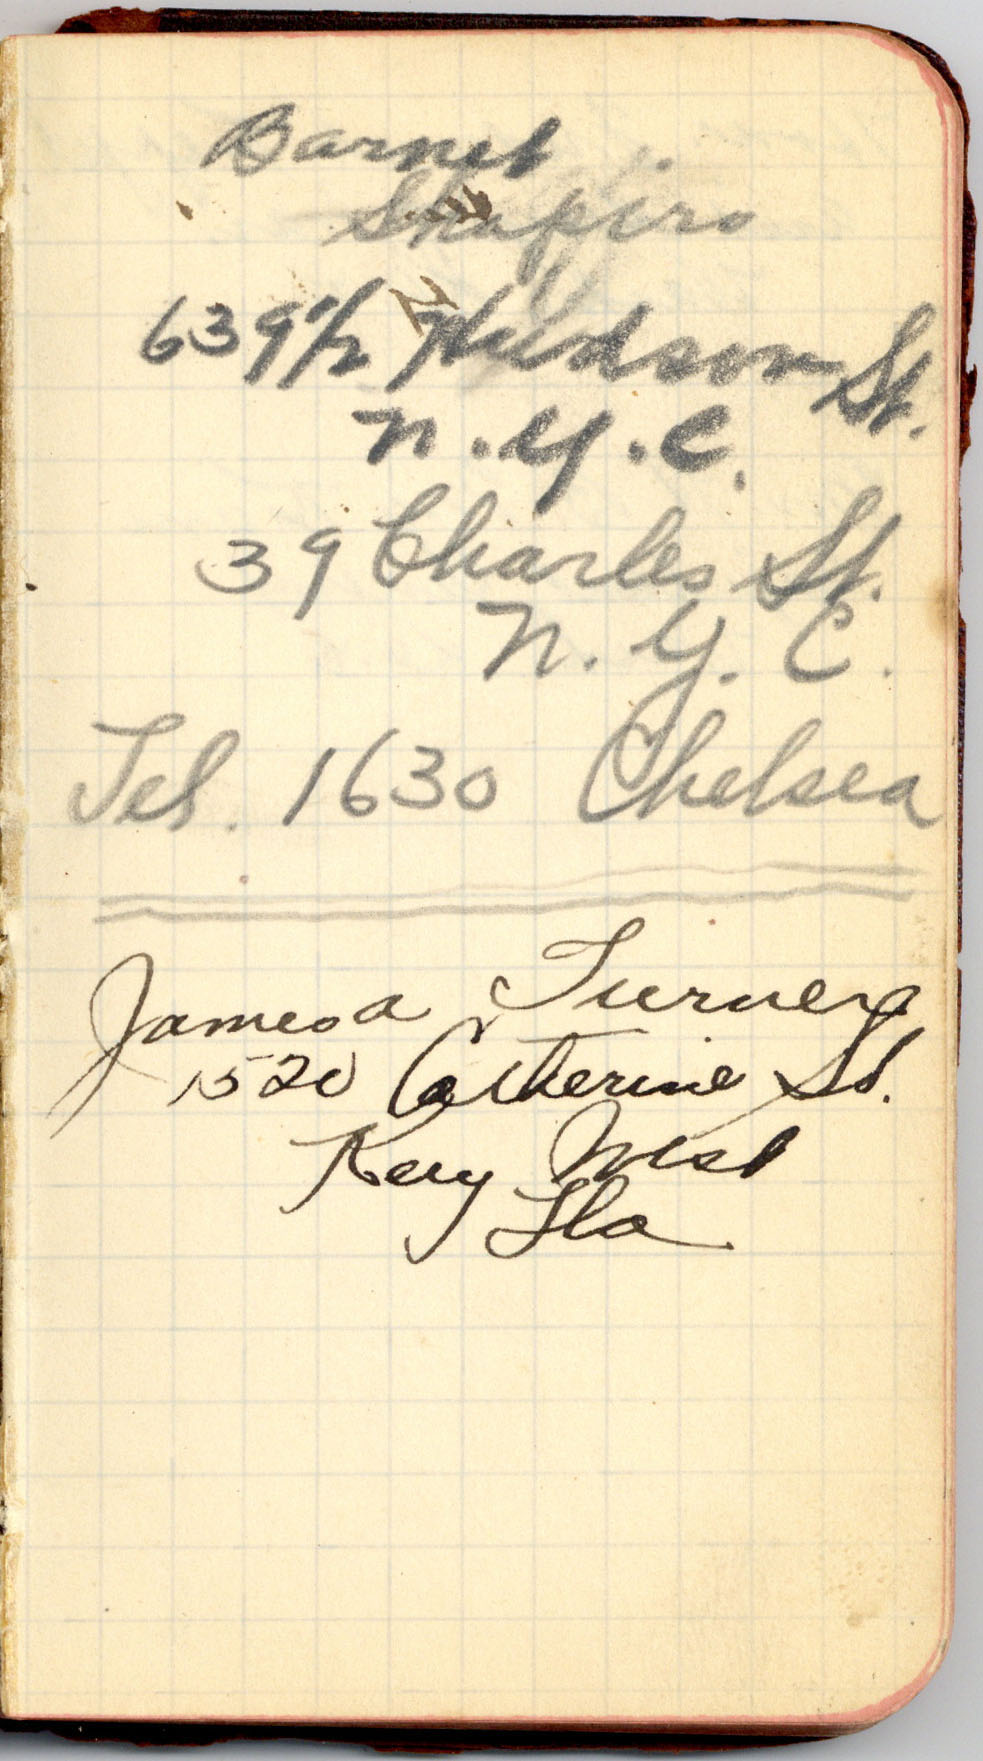 Barnet
Shapiro
639 1/2 Hudson St.
N.Y.C.
39 Charles St.
N.Y.C.
Tel. 1630 Chelsea
James a Turner
1520 Catherine St.
Key West
Fla